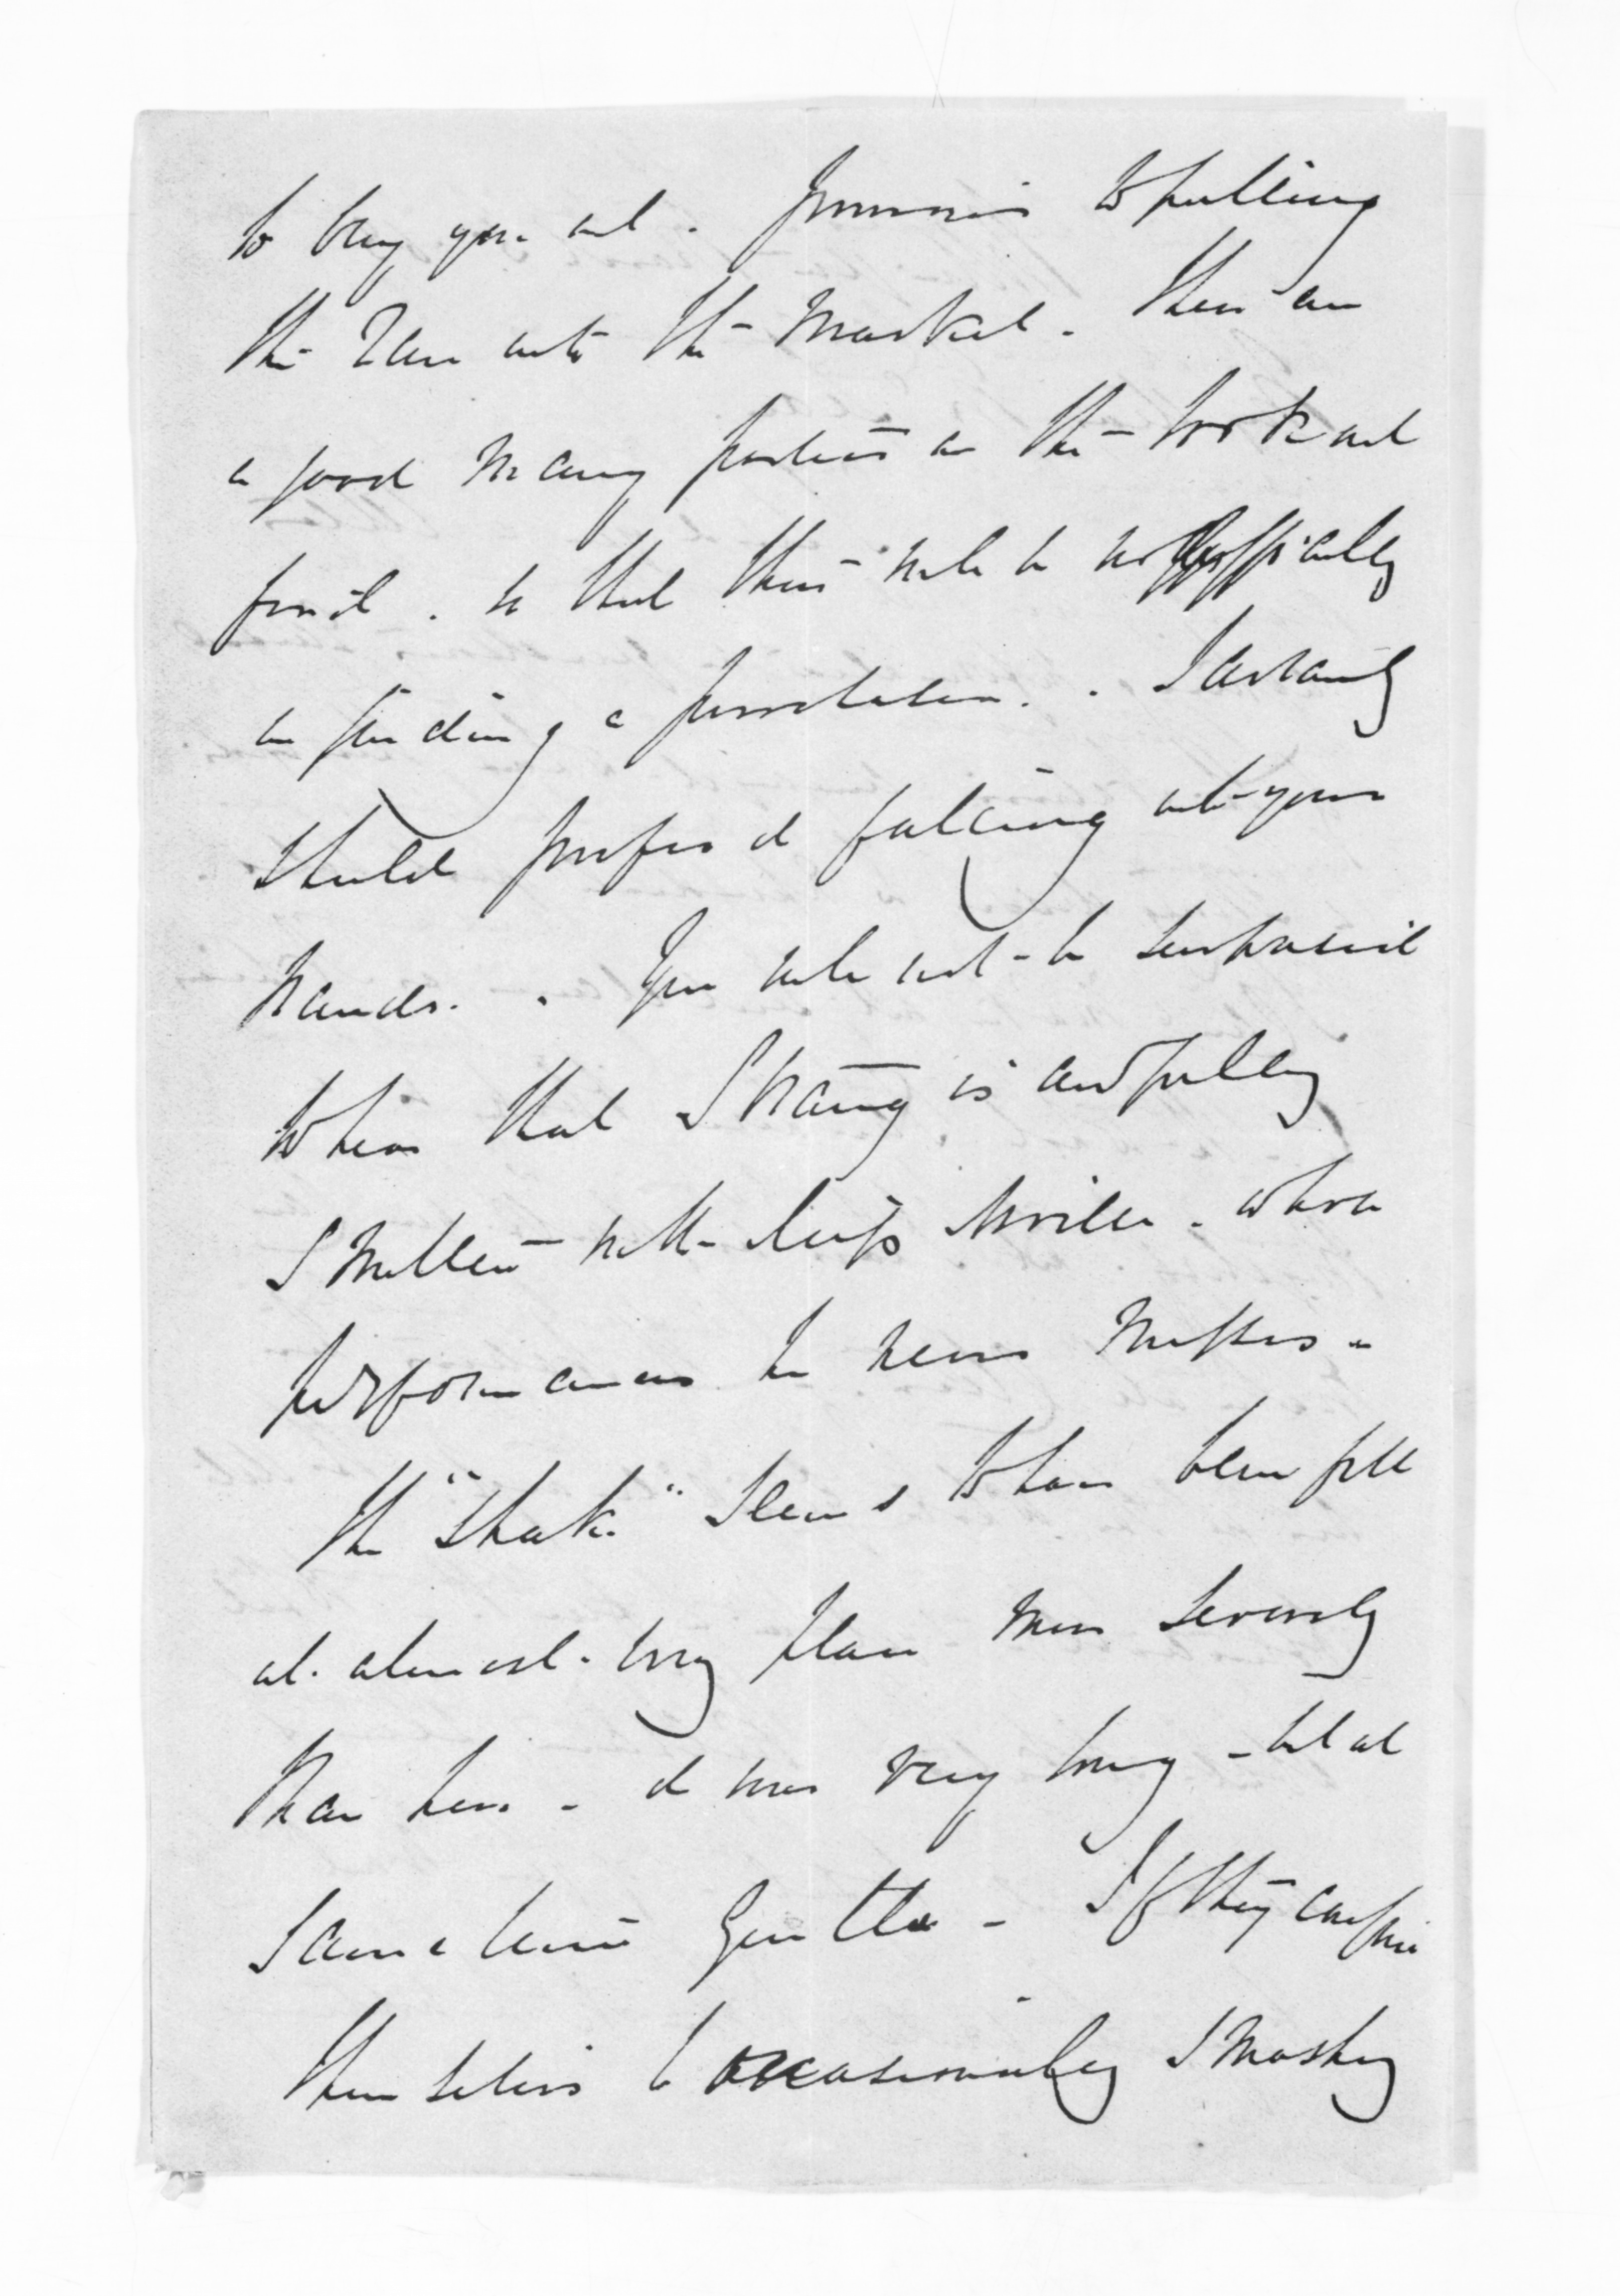 to buy you out. previous to putting
the Run into the Market. There are
a good many parties on the look out
for it. so that there will be no difficulty
in finding a purchaser. I certainly
should prefer it falling into your
hands. You will not be surprised
to hear that Strang is awfully
Smitten with Miss whose
performances he never misses.
The "Shake" seems to have been felt
at almost every place more severely
than here. it was very long - but at
same time gentle - If they confine
themselves to occasionally smashing